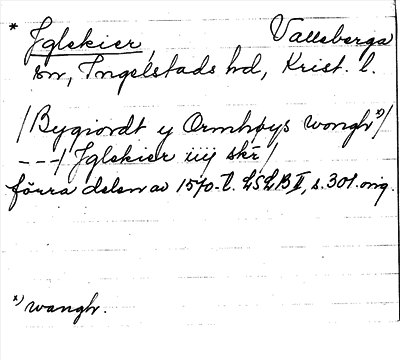 * Jglekier, Valleberga
sn, Ingelstads hd, Krist. l.
/Bygiordt y Ormhøys wongh x)/
---/ Jglekier iiij skr/
förra delen av 1570-t. LSLB II, s. 301. orig.
x) wangh.